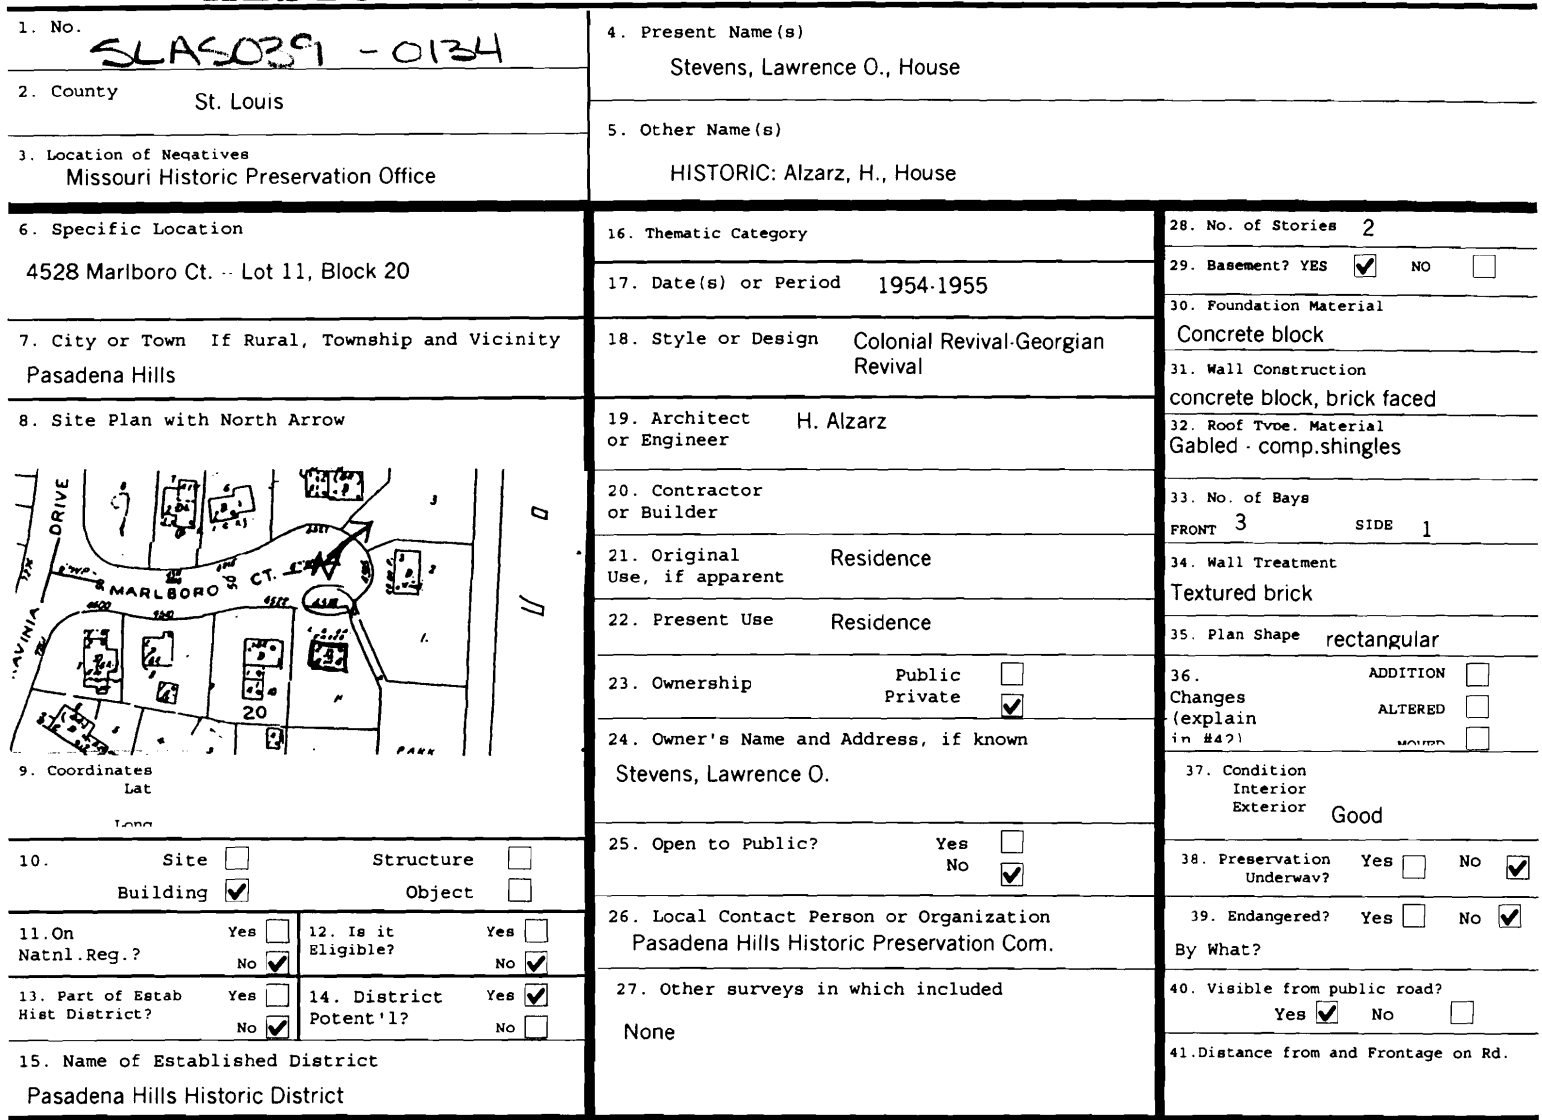 1. No.
SLAS039 - 0134
2. County
St. Louis
3. Location of Negatives
Missouri Historic Preservation Office
4. Present Name(s)
Stevens, Lawrence O., House
5. Other Name(s)
HISTORIC: Alzarz, H., House
6. Specific Location
4528 Marlboro Ct. -- Lot 11, Block 20
7. City or Town If Rural, Township and Vicinity
Pasadena Hills
8. Site Plan with North Arrow
DRIVE
MARLBORO CT.
20
PARK
9. Coordinates
Lat
Long
10. Site Structure
Building ✔ Object
11.On Yes
Natnl.Reg.? No ✔
12. Is it Yes
Eligible? No ✔
13. Part of Estab Yes
Hist District? No ✔
14. District Yes ✔
Potent'l? No
15. Name of Established District
Pasadena Hills Historic District
16. Thematic Category
17. Date(s) or Period 1954-1955
18. Style or Design Colonial Revival-Georgian
Revival
19. Architect H. Alzarz
or Engineer
20. Contractor
or Builder
21. Original Residence
Use, if apparent
22. Present Use Residence
23. Ownership Public
Private ✔
24. Owner's Name and Address, if known
Stevens, Lawrence O.
25. Open to Public? Yes
No ✔
26. Local Contact Person or Organization
Pasadena Hills Historic Preservation Com.
27. Other surveys in which included
None
28. No. of Stories 2
29. Basement? YES ✔ NO
30. Foundation Material
Concrete block
31. Wall Construction
concrete block, brick faced
32. Roof Type. Material
Gabled - comp.shingles
33. No. of Bays
FRONT 3 SIDE 1
34. Wall Treatment
Textured brick
35. Plan Shape rectangular
36. ADDITION
Changes
(explain ALTERED
in #42) MOVED
37. Condition
Interior
Exterior Good
38. Preservation Yes No ✔
Underway?
39. Endangered? Yes No ✔
By What?
40. Visible from public road?
Yes ✔ No
41.Distance from and Frontage on Rd.